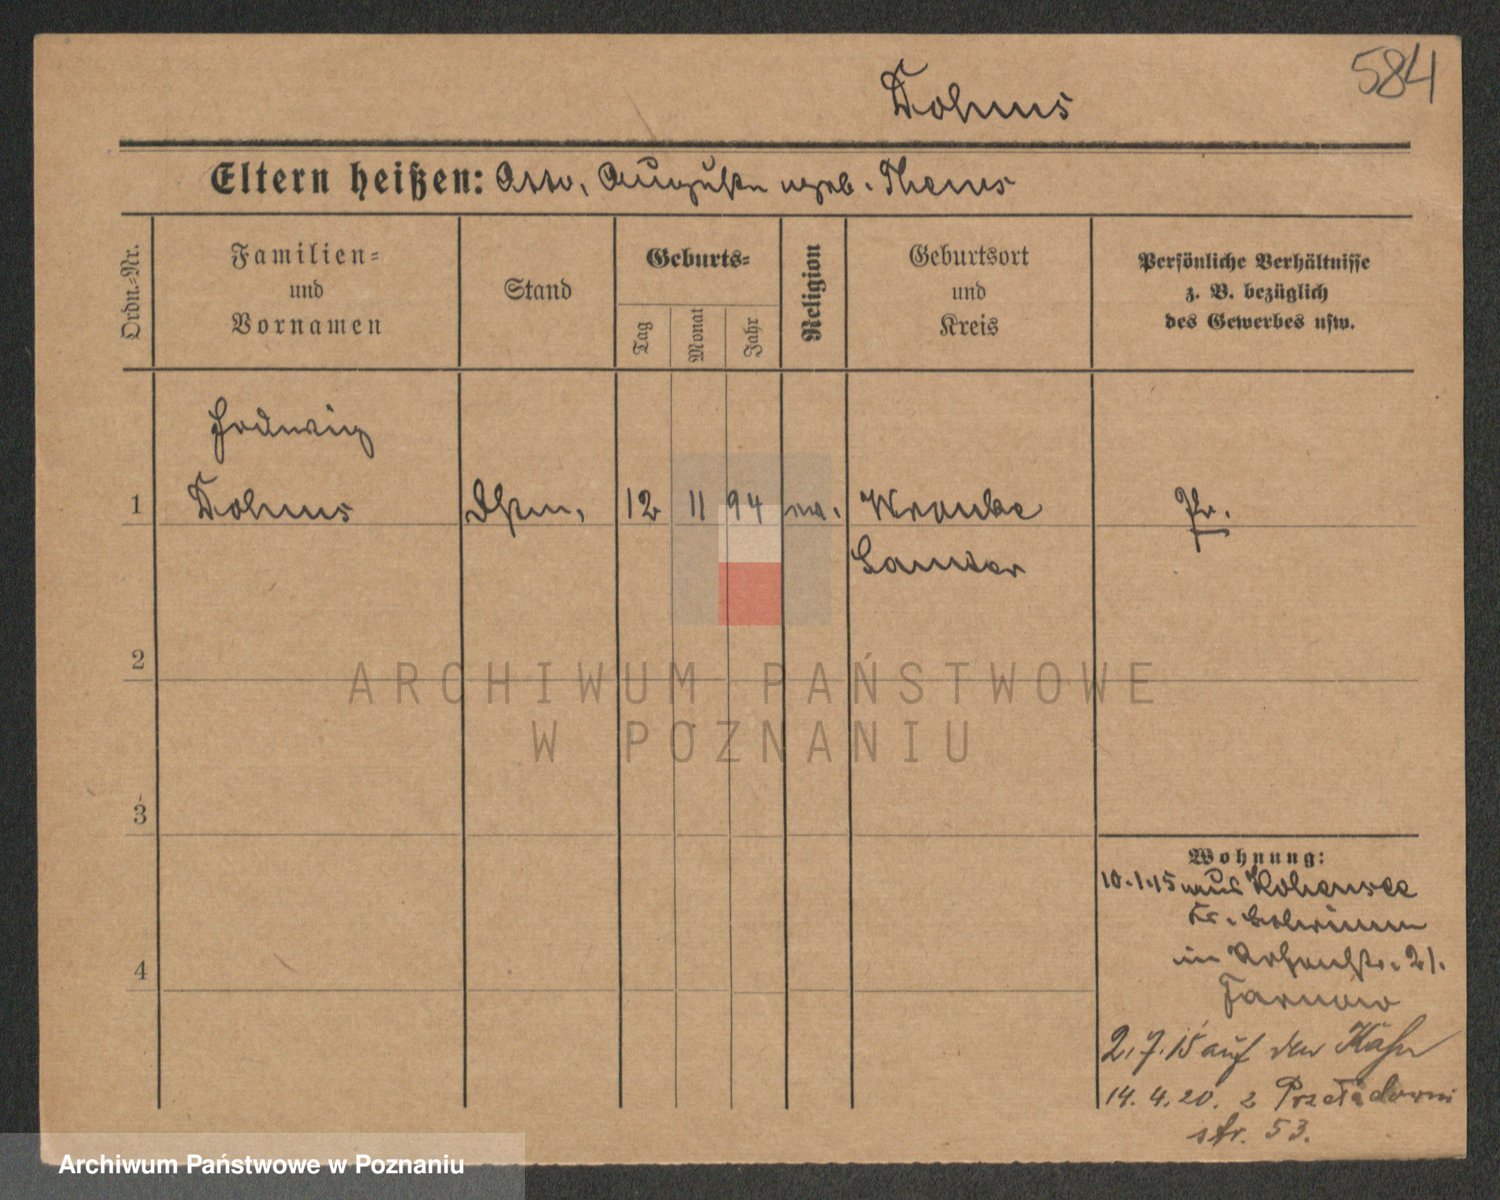 584
Dohms
Eltern heißen: Otto, Auguste geb. Thews
Ordn.-Nr.
Familien-
und
Vornamen
Stand
Geburts-
Tag
Monat
Jahr
Religion
Geburtsort
und
Kreis
Persönliche Verhältnisse
z. B. bezüglich
des Gewerbes usw.
Hedwig
1 Dohms 12 11 94 ev. Wronke Pr.
Samter
2
3
4
Wohnung:
10.1.15 aus Hohensee
Kr.
in 21.
Tarnow
2.7.15 auf den Kahn
14. 4. 20. z
str. 53.
ARCHIWUM PAŃSTWOWE
W POZNANIU
Archiwum Państwowe w Poznaniu